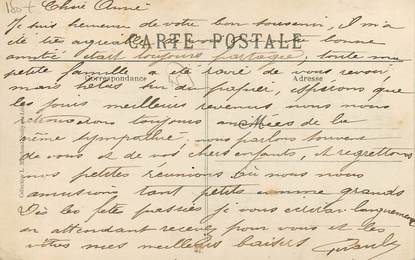 Chère Année
Je suis heureuse de votre bon souvenir, Il m'a
été très agréable bonne
CARTE POSTALE
amitié était toujours partagée, toute ma
Correspondance Adresse
petite famille a été ravie de vous revoir,
mais hélas du papier, espérons que
les jours meilleurs revenus nous nous
toujours animées de la
même sympathie, nous parlons souvent
de vous et de vos chers enfants, et regrettons
nos petites réunions où nous nous
amusions tant petits comme grands
Dès les fêtes passées je vous écrirai longuement
en attendant recevez pour vous et les
vôtres mes meilleurs baisers